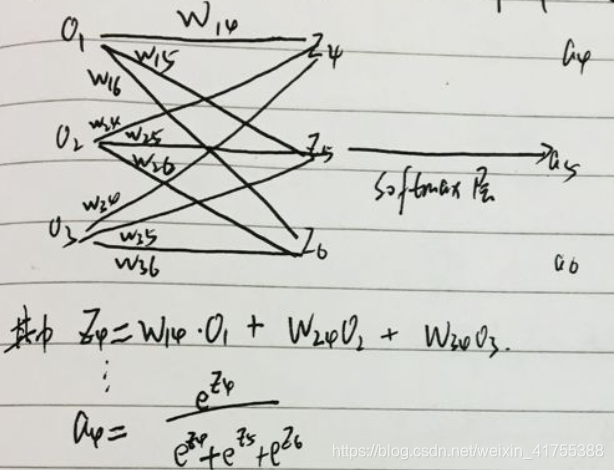 O₁ W₁₄ Z₄ a₄
W₁₅
W₁₆
W₂₄
O₂ W₂₅ Z₅ a₅
W₂₆ softmax层
W₃₄
O₃ W₃₅ Z₆ a₆
W₃₆
其中 Z₄ = W₁₄·O₁ + W₂₄O₂ + W₃₄O₃.
⋮
a₄ = e^Z₄ / e^Z₄+e^Z₅+e^Z₆
https://blog.csdn.net/weixin_41755388